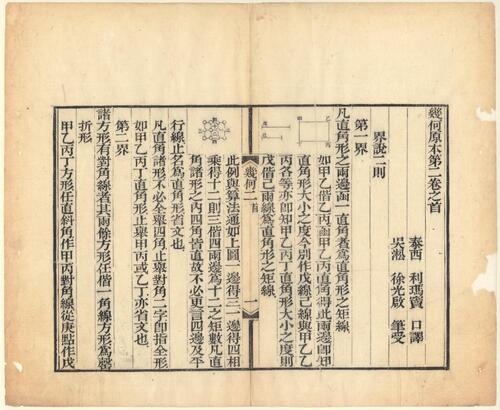 幾何原本第二卷之首
泰西 利瑪竇 口譯
吳淞 徐光啟 筆受
界說二則
第一界
凡直角形之兩邊函一直角者爲直角形之矩線
如甲乙偕乙丙函甲乙丙直角得此兩邊卽知
直角形大小之度今別作戊線己線與甲乙乙
丙各等亦卽知甲乙丙丁直角形大小之度則
戊偕己兩線爲直角形之矩線
幾何二 首 一
此例與算法通如上圖一邊得三一邊得四相
乘得十二則三偕四兩邊爲十二之矩數凡直
角諸形之內四角皆直故不必更言四邊及平
行線止名爲直角形省文也
凡直角諸形不必全舉四角止舉對角二字卽指全形
如甲乙丙丁直角形止舉甲丙或乙丁亦省文也
第二界
諸方形有對角線者其兩餘方形任偕一角線方形爲罄
折形
甲乙丙丁方形任直斜角作甲丙對角線從庚點作戊